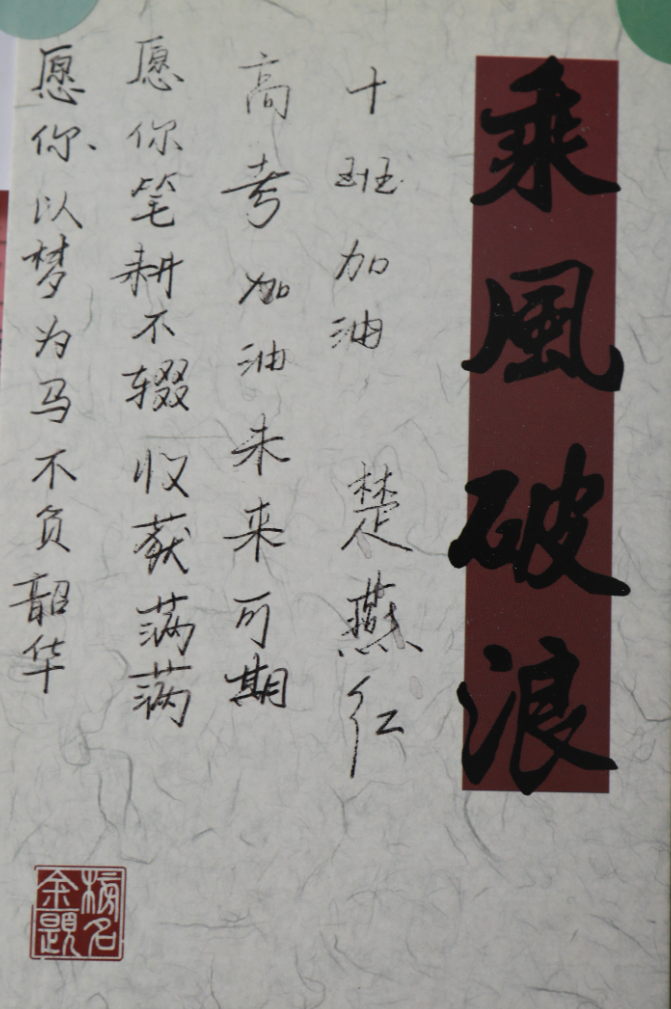 乘風破浪
十班加油 楚燕红
高考加油未来可期
愿你笔耕不辍收获满满
愿你以梦为马不负韶华
金榜
題名